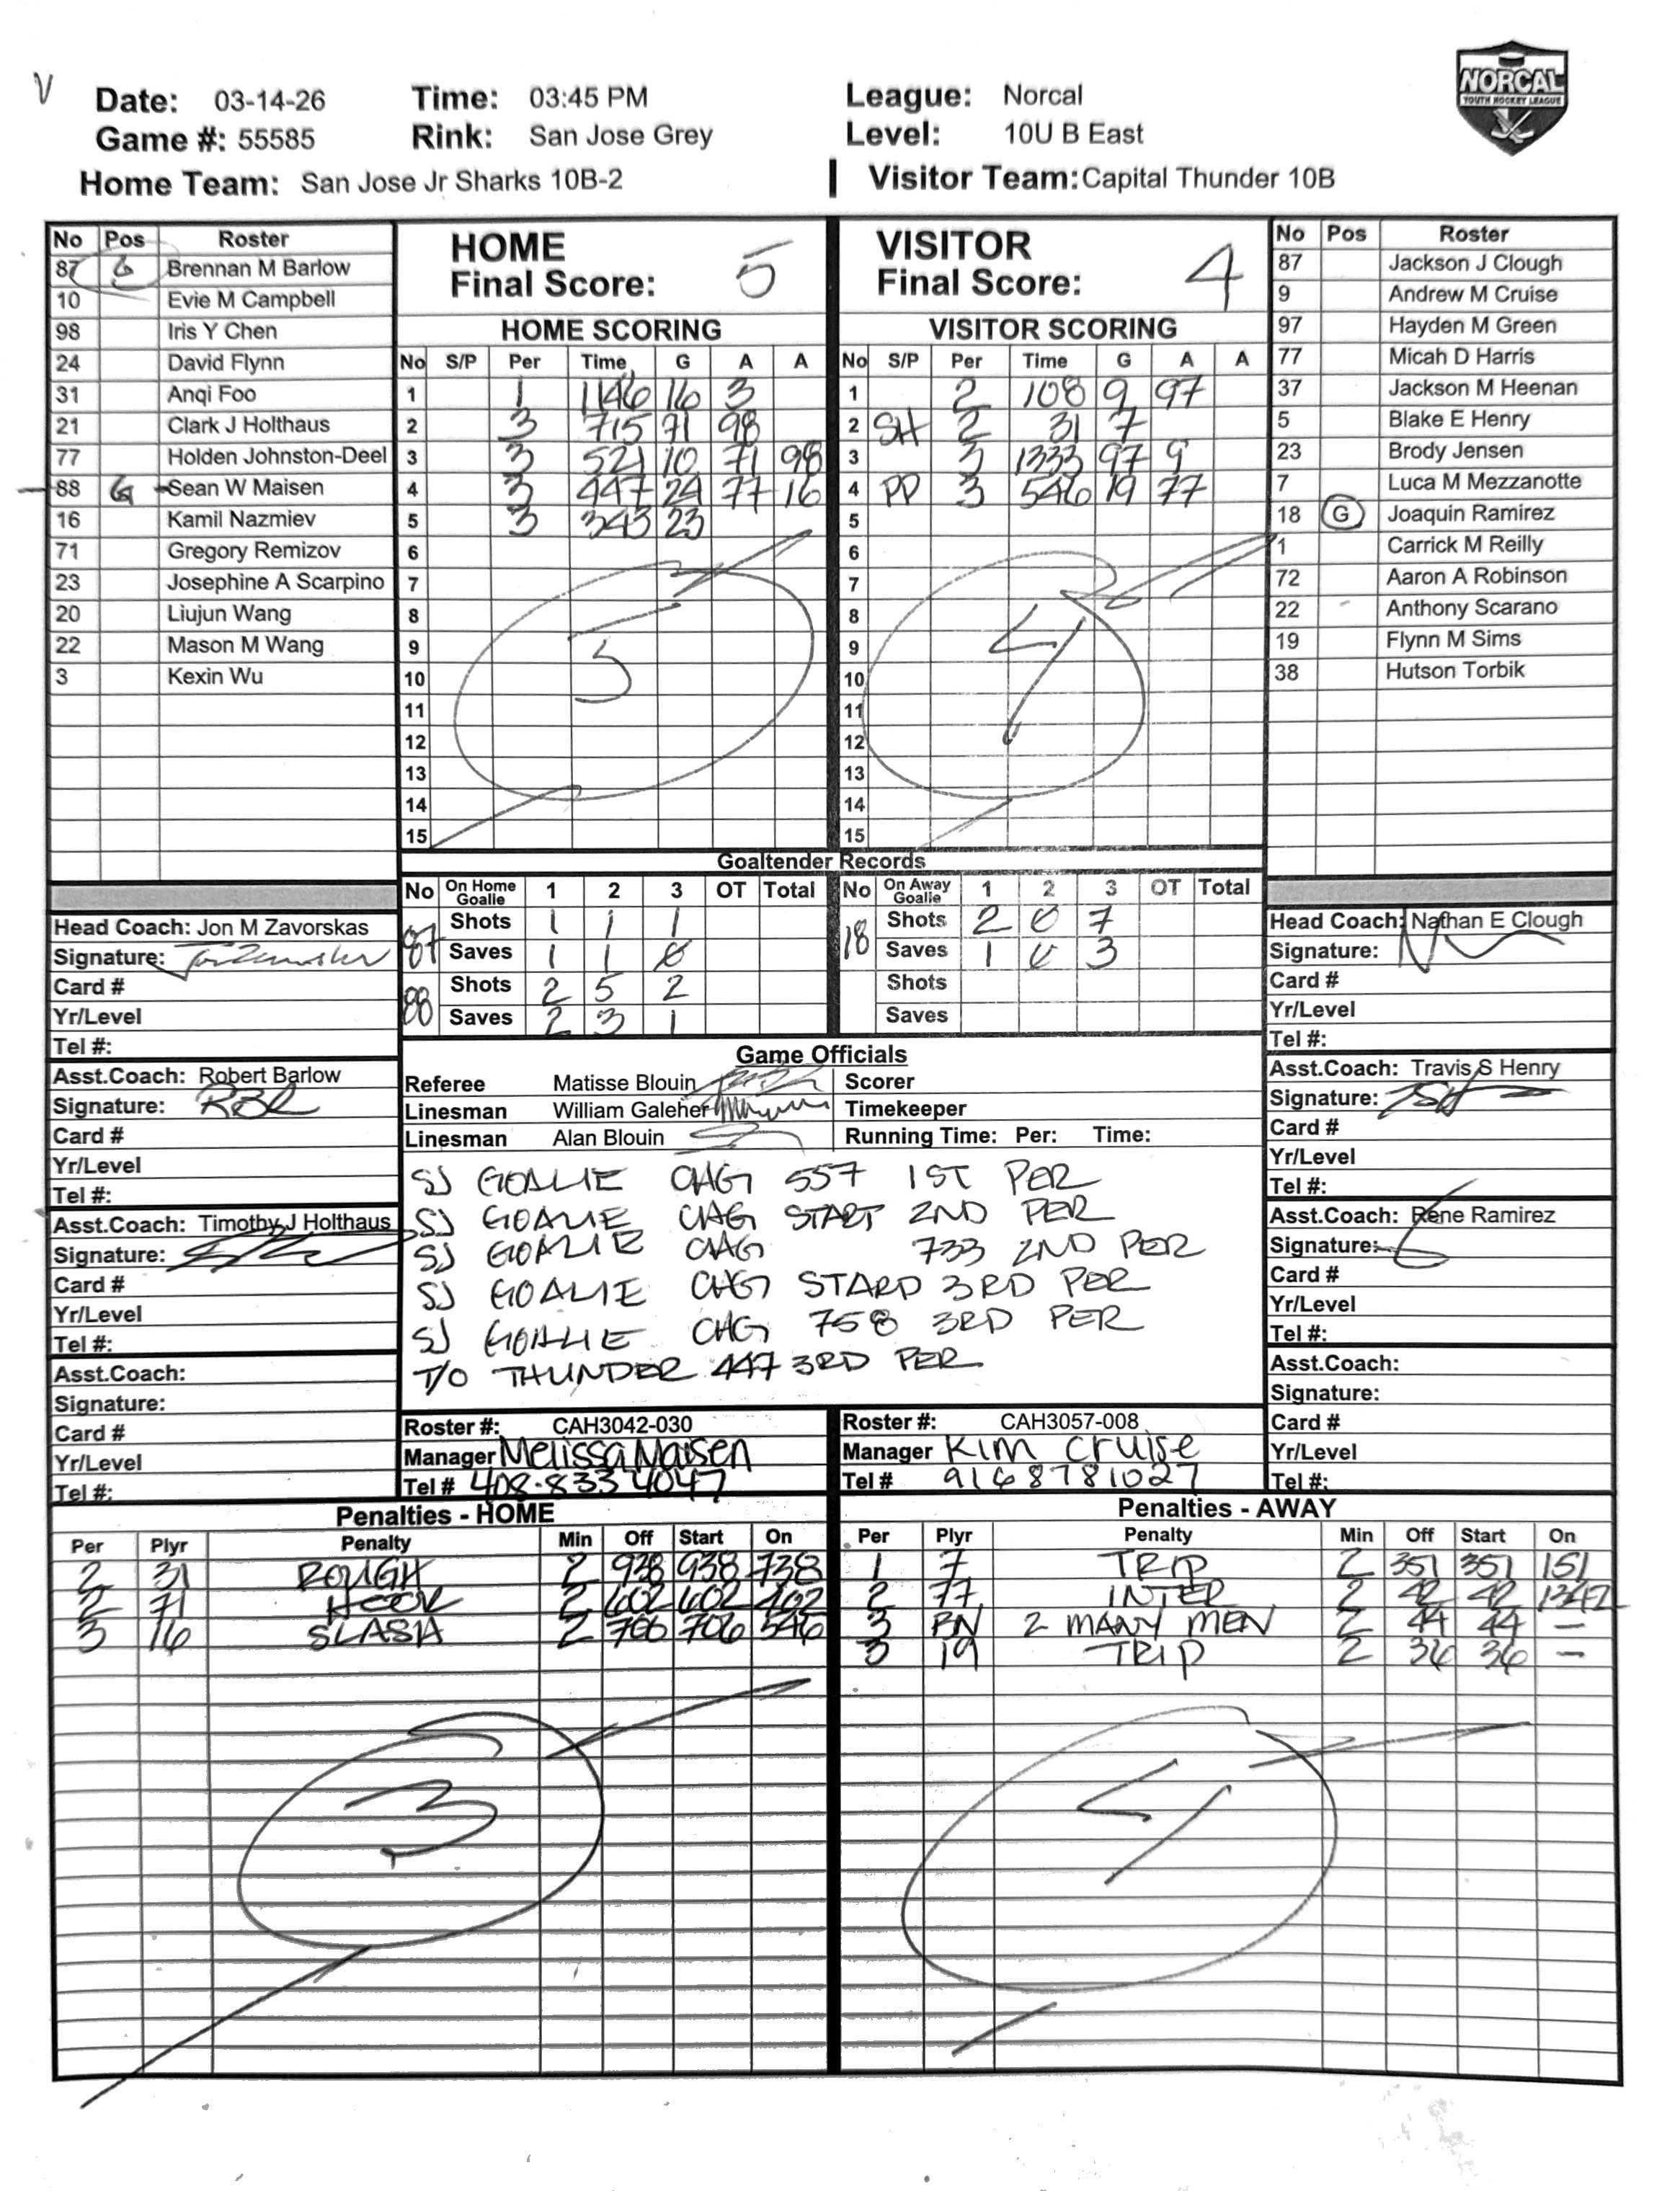 V
NORCAL
YOUTH HOCKEY LEAGUE
Date: 03-14-26 Time: 03:45 PM League: Norcal
Game #: 55585 Rink: San Jose Grey Level: 10U B East
Home Team: San Jose Jr Sharks 10B-2 Visitor Team: Capital Thunder 10B
No Pos Roster
87 G Brennan M Barlow
10 Evie M Campbell
98 Iris Y Chen
24 David Flynn
31 Anqi Foo
21 Clark J Holthaus
77 Holden Johnston-Deel
88 G Sean W Maisen
16 Kamil Nazmiev
71 Gregory Remizov
23 Josephine A Scarpino
20 Liujun Wang
22 Mason M Wang
3 Kexin Wu
HOME
Final Score: 5
HOME SCORING
No S/P Per Time G A A
1 1 1146 16 3
2 3 715 71 98
3 3 521 10 71 98
4 3 447 24 77 16
5 3 343 23
6
7
8
9
10
11
12
13
14
15
5
VISITOR
Final Score: 4
VISITOR SCORING
No S/P Per Time G A A
1 2 108 9 97
2 SH 2 31 7
3 3 1333 97 9
4 PP 3 546 19 77
5
6
7
8
9
10
11
12
13
14
15
4
No Pos Roster
87 Jackson J Clough
9 Andrew M Cruise
97 Hayden M Green
77 Micah D Harris
37 Jackson M Heenan
5 Blake E Henry
23 Brody Jensen
7 Luca M Mezzanotte
18 G Joaquin Ramirez
1 Carrick M Reilly
72 Aaron A Robinson
22 Anthony Scarano
19 Flynn M Sims
38 Hutson Torbik
Goaltender Records
No On Home Goalie 1 2 3 OT Total
87 Shots 1 1 1
Saves 1 1 0
88 Shots 2 5 2
Saves 2 3 1
No On Away Goalie 1 2 3 OT Total
18 Shots 2 0 7
Saves 1 0 3
Shots
Saves
Head Coach: Jon M Zavorskas
Signature:
Card #
Yr/Level
Tel #:
Asst.Coach: Robert Barlow
Signature:
Card #
Yr/Level
Tel #:
Asst.Coach: Timothy J Holthaus
Signature:
Card #
Yr/Level
Tel #:
Asst.Coach:
Signature:
Card #
Yr/Level
Tel #:
Game Officials
Referee Matisse Blouin Scorer
Linesman William Galeher Timekeeper
Linesman Alan Blouin Running Time: Per: Time:
SJ GOALIE CHG 557 1ST PER
SJ GOALIE CHG START 2ND PER
SJ GOALIE CHG 733 2ND PER
SJ GOALIE CHG STARD 3RD PER
SJ GOALIE CHG 758 3RD PER
T/O THUNDER 447 3RD PER
Roster #: CAH3042-030
Manager Melissa Maisen
Tel # 408-833 4047
Roster #: CAH3057-008
Manager Kim Cruise
Tel # 9168781027
Head Coach: Nathan E Clough
Signature:
Card #
Yr/Level
Tel #:
Asst.Coach: Travis S Henry
Signature:
Card #
Yr/Level
Tel #:
Asst.Coach: Rene Ramirez
Signature:
Card #
Yr/Level
Tel #:
Asst.Coach:
Signature:
Card #
Yr/Level
Tel #:
Penalties - HOME
Per Plyr Penalty Min Off Start On
2 31 ROUGH 2 938 938 738
2 71 HOOK 2 602 602 402
3 16 SLASH 2 706 706 546
3
Penalties - AWAY
Per Plyr Penalty Min Off Start On
1 7 TRIP 2 351 351 151
2 77 INTER 2 42 42 1342
3 BN 2 MANY MEN 2 44 44 —
3 19 TRIP 2 36 36 —
4